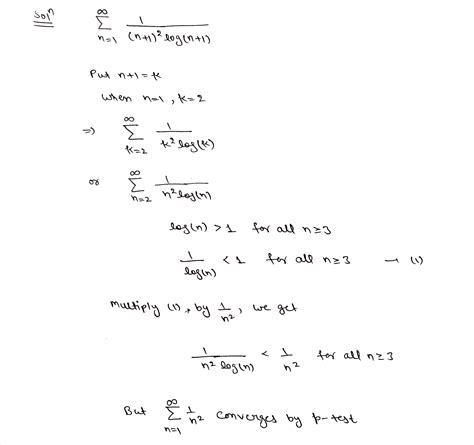 Solⁿ ∞ ∑ n=1 1/((n+1)² log(n+1))
Put n+1 = k
when n=1, k=2
⇒ ∞ ∑ k=2 1/(k² log(k))
or ∞ ∑ n=2 1/(n² log(n))
log(n) > 1 for all n≥3
1/log(n) < 1 for all n≥3 → (1)
Multiply (1), by 1/n², we get
1/(n² log(n)) < 1/n² for all n≥3
But ∞ ∑ n=1 1/n² converges by p-test